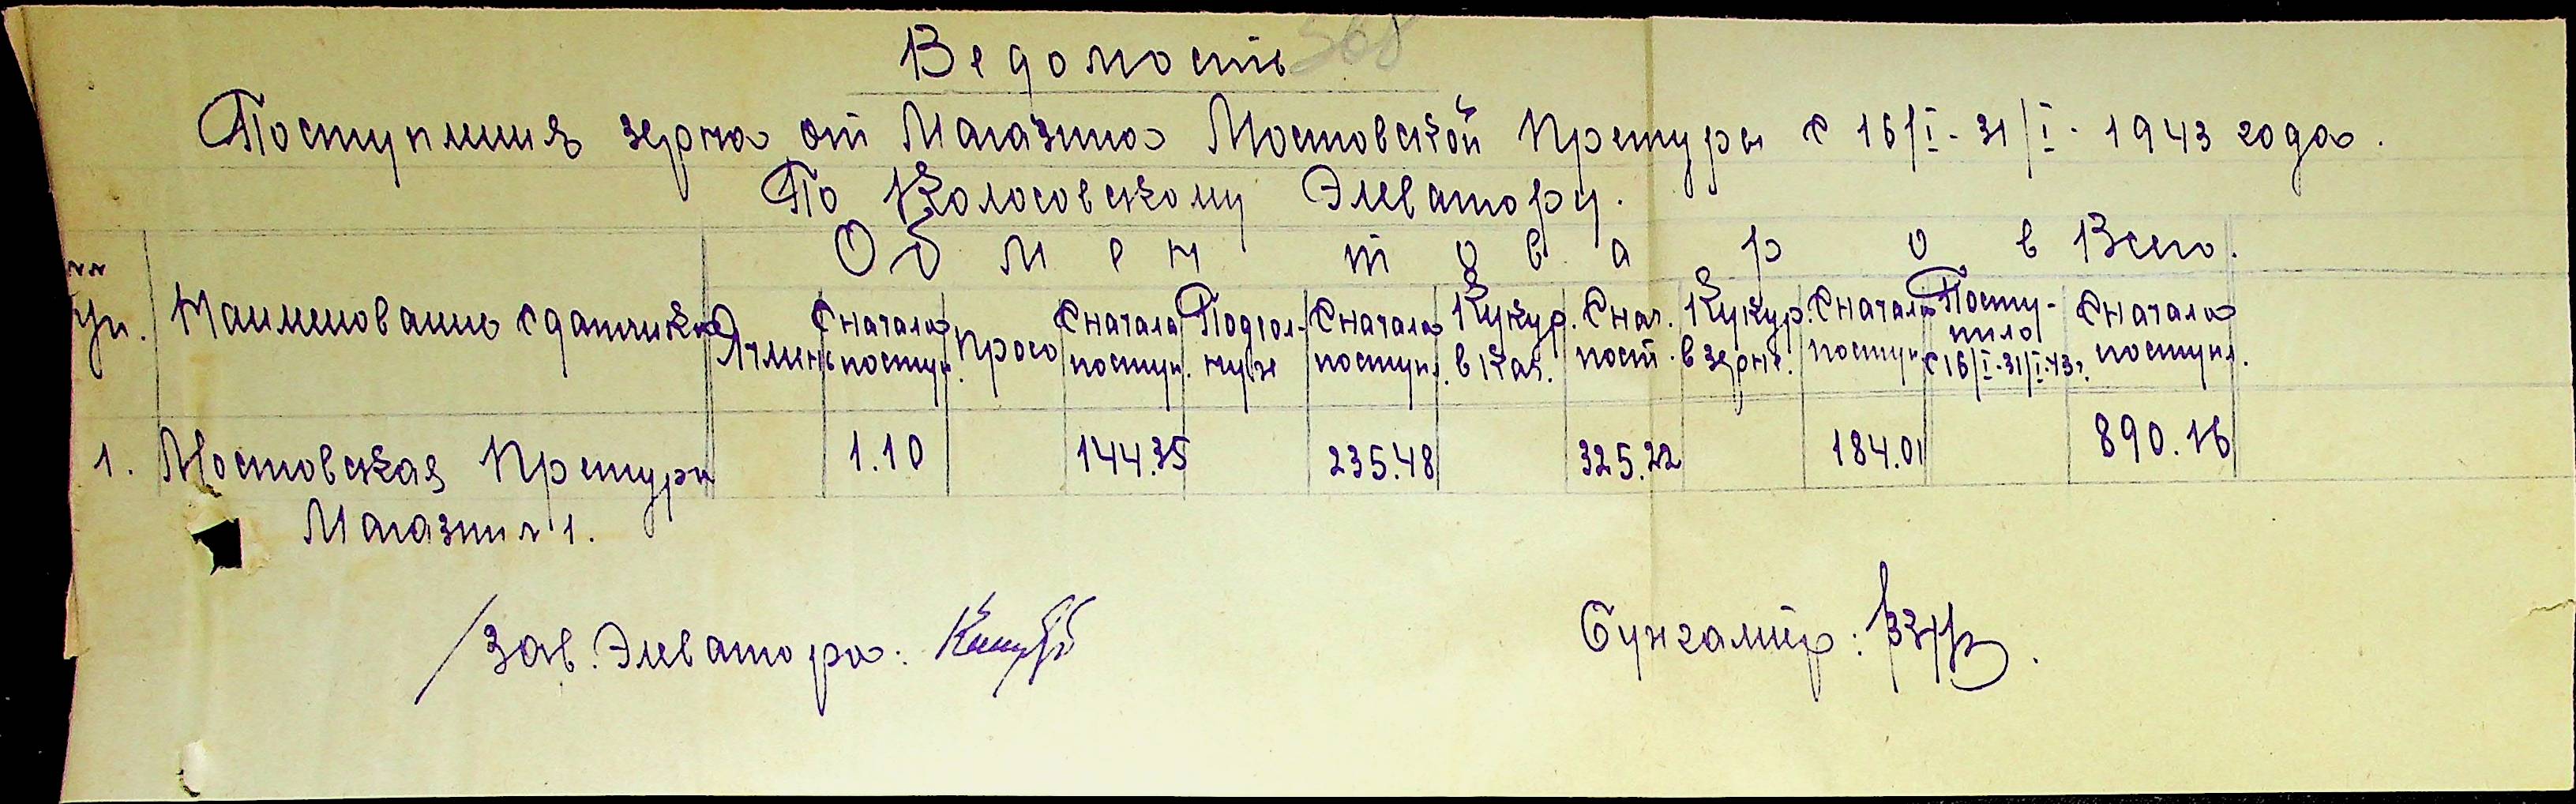 Ведомость 568
Поступления зерна от Магазина Мостовской Претуры с 16/I - 31/I - 1943 года.
По Колосовскому Элеватору.
Обмен товаров Всего.
№№ Наименование сдатчика Ячмень Сначала поступ. Просо Сначала поступ. Подсолнухи Сначала поступл. Кукур. в Кач. Снач. пост. Кукур. в зерне. Сначала поступ. Поступило с 16/I-31/I-43г. Сначала поступл.
1. Мостовская Претура 1.10 144.35 235.48 325.22 184.01 890.16
Магазин 1.
Зав. Элеватора: Бухгалтер: